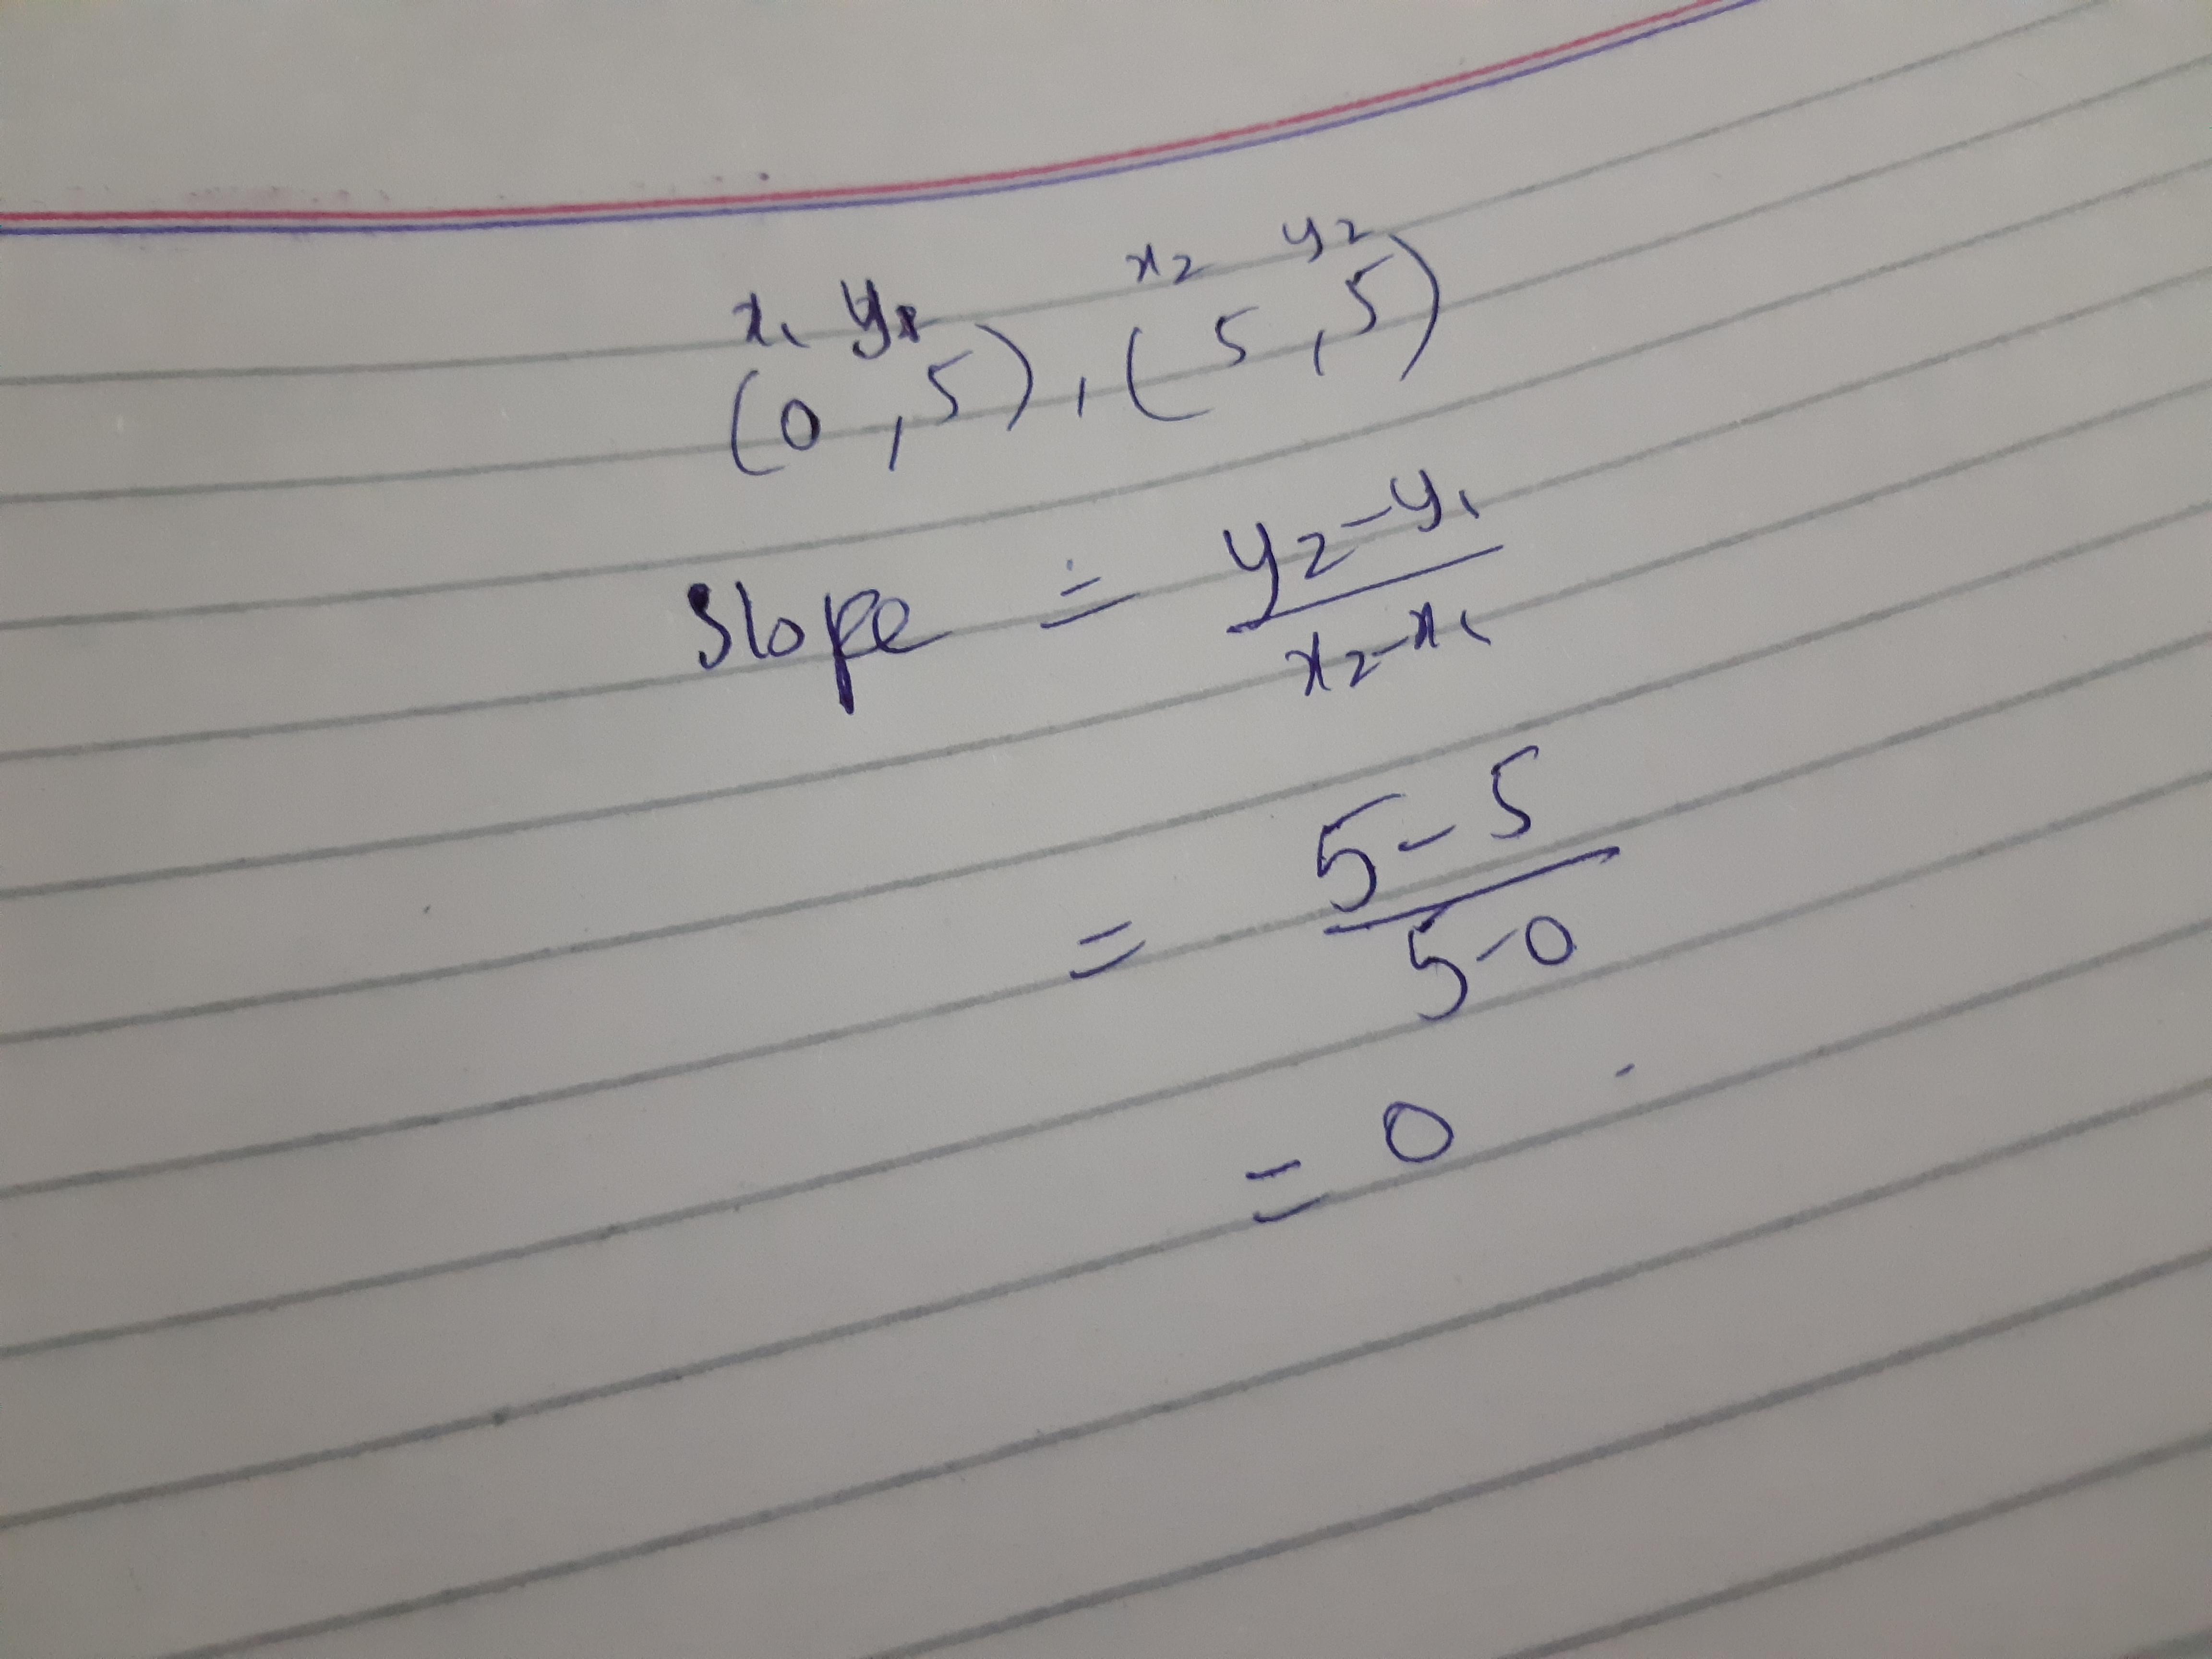 x₁ y₁ x₂ y₂
(0 , 5) , (5 , 5)
Slope = y₂-y₁
x₂-x₁
= 5-5
5-0
= 0